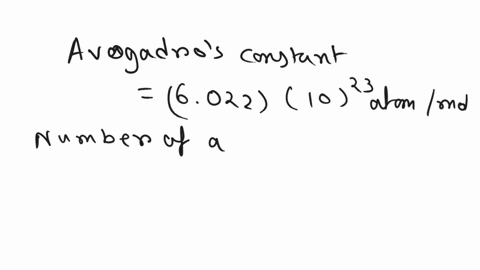 Avogadro's constant
= (6.022) (10)^23 atom/mol
Number of a